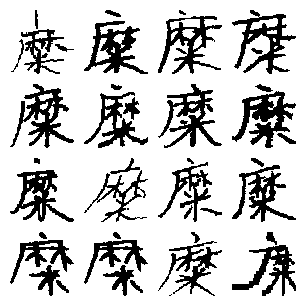 糜糜糜糜
糜糜糜糜
糜糜糜糜
糜糜糜糜